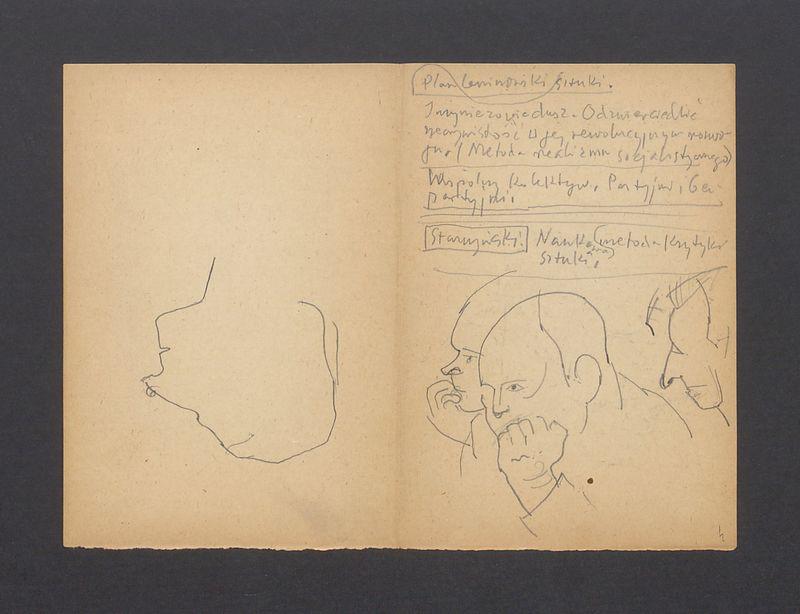 Plan Leninowski Sztuki.
Inżynierowie dusz. Odzwierciedlić
rzeczywistość w jej rewolucyjnym
(Metoda realizmu socjalistycznego)
Wspólny kolektyw. Partyjni i bez-
partyjni.
Starzyński! Nauka (metoda krytyki
sztuki.